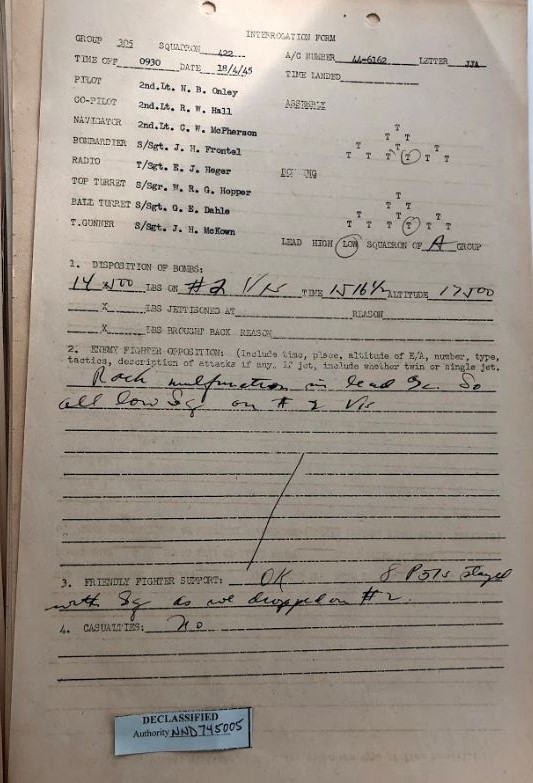 INTERROGATION FORM
GROUP 305 SQUADRON 422 A/C NUMBER 44-6162 LETTER JJA
TIME OFF 0930 DATE 18/4/45 TIME LANDED
PILOT 2nd.Lt. N. B. Onley
CO-PILOT 2nd.Lt. R. W. Hall ASSEMBLY
NAVIGATOR 2nd.Lt. C. W. McPherson
T
T T
BOMBARDIER S/Sgt. J. H. Frontel T T T
T T T T T
RADIO T/Sgt. E. J. Heger
TOP TURRET S/Sgr. W. R. G. Hopper
T
BALL TURRET S/Sgt. G. E. Dahle T T
T T T
T.GUNNER S/Sgt. J. H. McKown T T T T T
LEAD HIGH LOW SQUADRON OF A GROUP
1. DISPOSITION OF BOMBS:
14 X500 LBS ON #2 Vis TIME 1516½ ALTITUDE 17500
X LBS JETTISONED AT REASON
X LBS BROUGHT BACK REASON
2. ENEMY FIGHTER OPPOSITION: (Include time, place, altitude of E/A, number, type,
tactics, description of attacks if any. If jet, include whether twin or single jet.
Rack malfunction in lead So
all low Sq on # 2 Vis
3. FRIENDLY FIGHTER SUPPORT: OK 8 P51s stayed
with Sq as we dropped on #2.
4. CASUALTIES: No
DECLASSIFIED
Authority NND745005